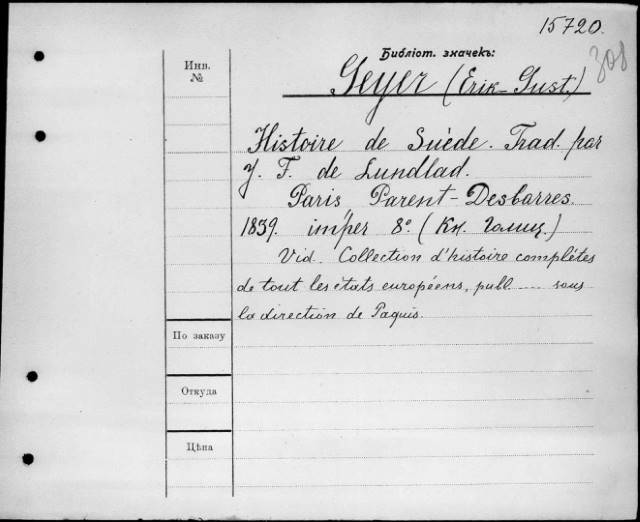 15720.
308
Библіот. значекъ:
Инв. №
Geyer (Erik-Gust.)
Histoire de Suède. Trad. par
J. F. de Lundlad.
Paris Parent-Desbarres.
1839. impér 8º. (Кн. Голиц.)
Vid. Collection d'histoire complétes
de tout les états européens, publ. .... sous
la direction de Paquis.
По заказу
Откуда
Цѣна